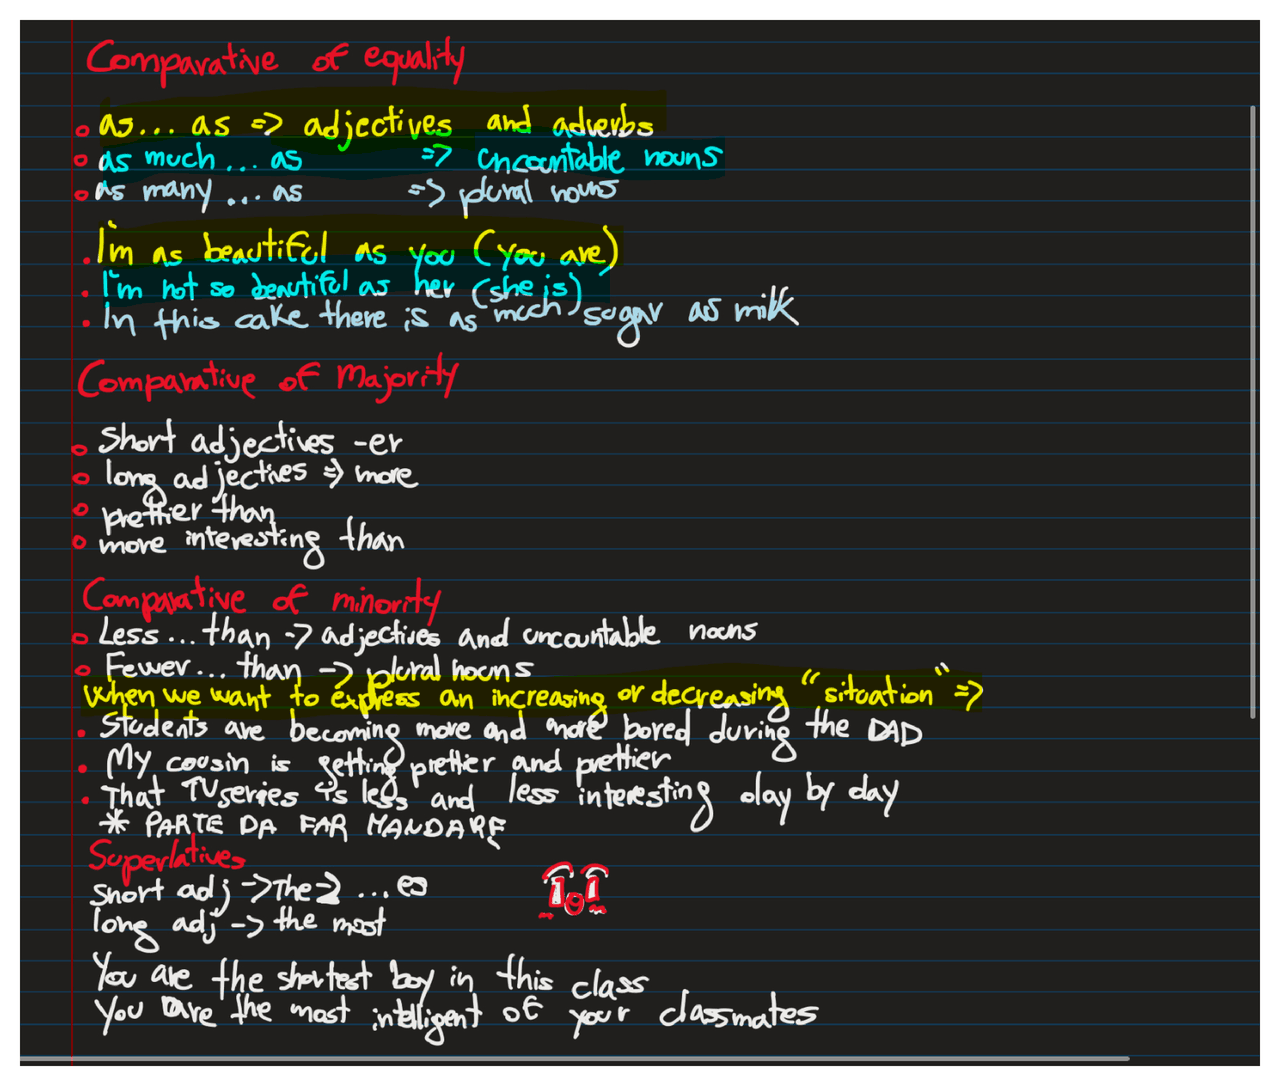 Comparative of equality
as... as => adjectives and adverbs
as much ... as => uncountable nouns
as many ... as => plural nouns
I'm as beautiful as you (you are)
I'm not so beautiful as her (she is)
In this cake there is as much sugar as milk
Comparative of Majority
Short adjectives -er
long adjectives => more
prettier than
more interesting than
Comparative of minority
Less... than -> adjectives and uncountable nouns
Fewer... than -> plural nouns
When we want to express an increasing or decreasing "situation" =>
Students are becoming more and more bored during the DAD
My cousin is getting prettier and prettier
That TV series is less and less interesting day by day
* PARTE DA FAR MANDARE
Superlatives
short adj -> The ...
long adj -> the most
You are the shortest boy in this class
You are the most intelligent of your classmates